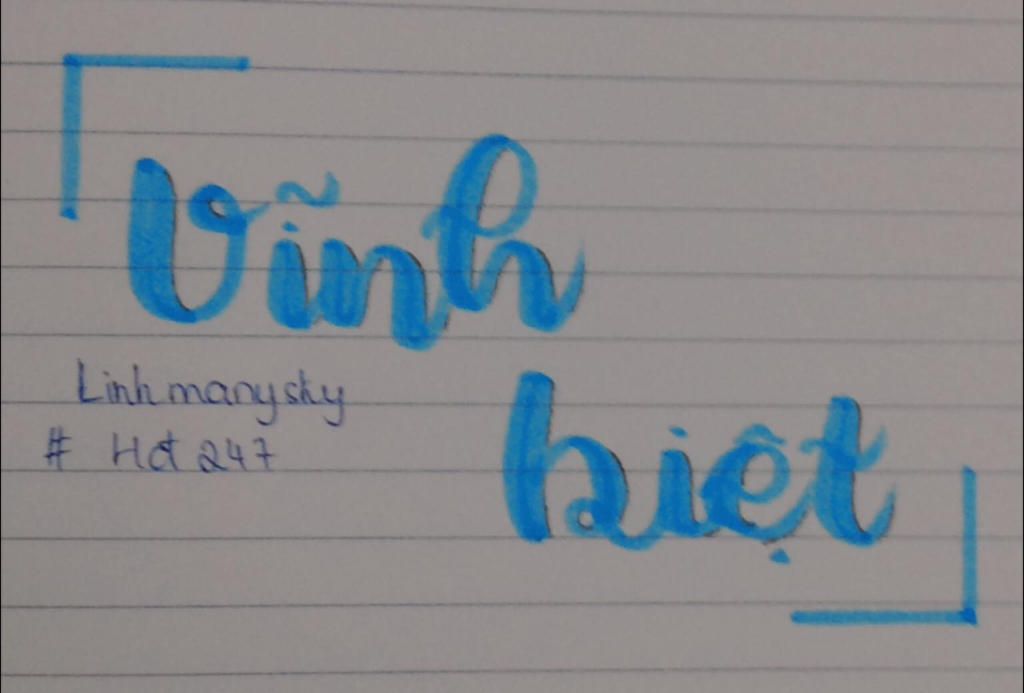 Vĩnh
Linhmanysky
# Hot 247
biệt